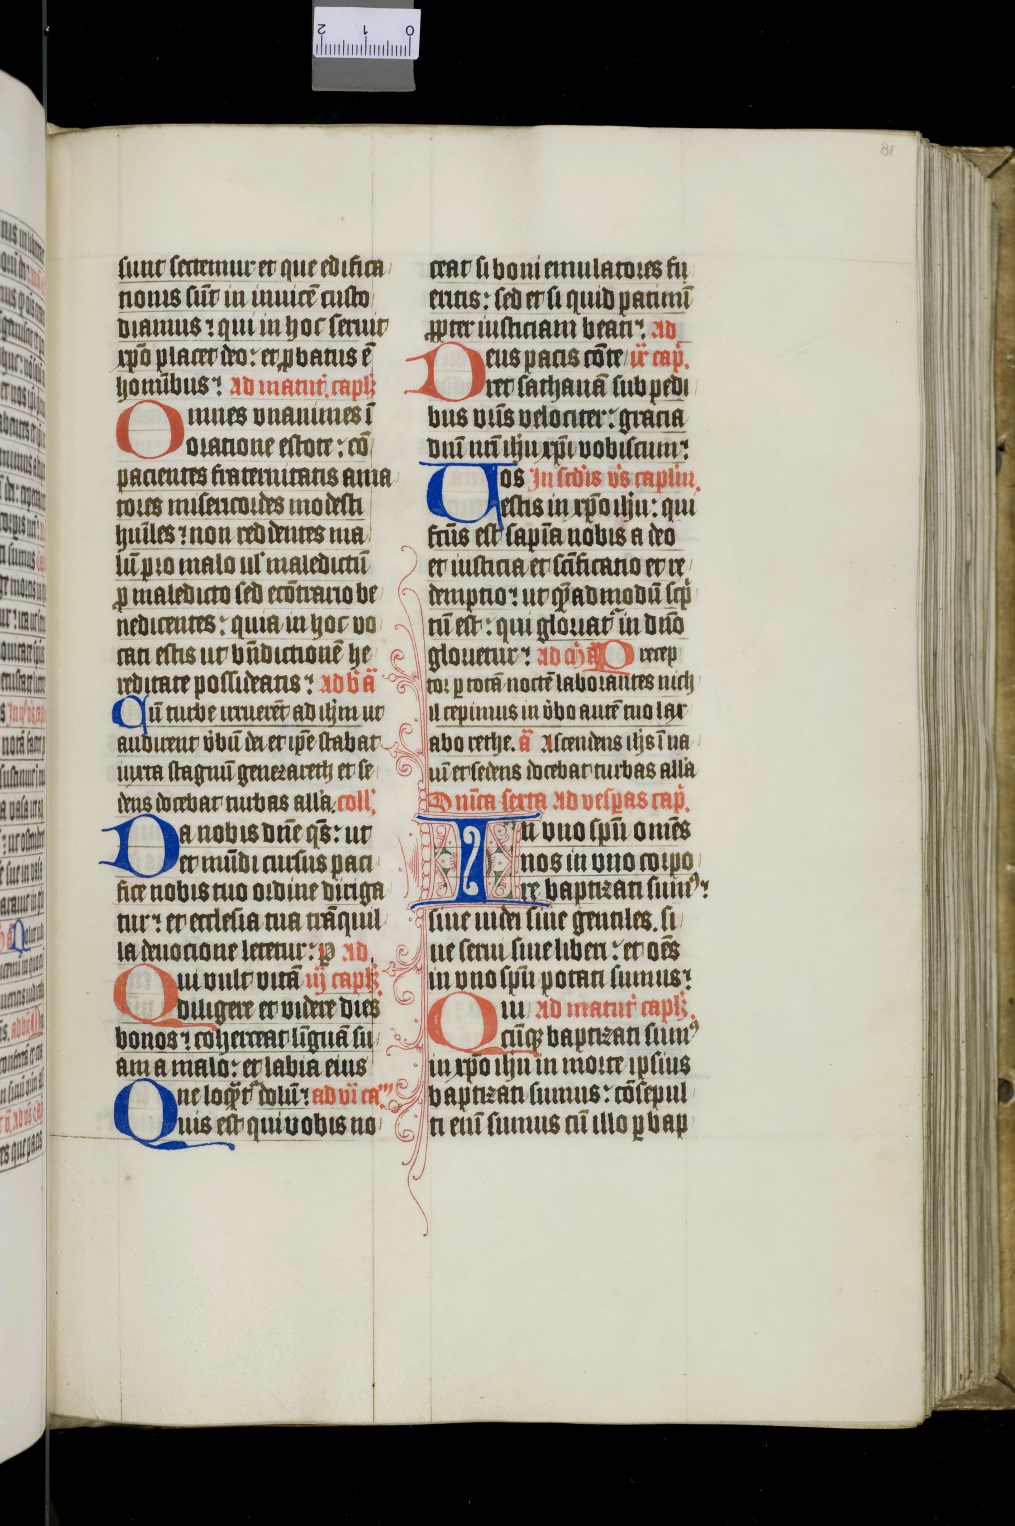 81
sunt sectemur et que edifica
tionis sūt in invicē custo
diamus ⁊ qui in hoc servit
xp̄o placet deo : et ꝓbatus ē
hominibus ⁊ ad matut᷑ capl᷑
Omnes unanimes ī
oratione estote : cō
pacientes fraternitatis ama
tores misericordes modesti
huīles ⁊ non reddentes ma
lū pro malo ul᷑ maledictū
ꝑ maledicto sed ecōtrario be
nedicentes : quia in hoc vo
cati estis ut bn̄dictionē he
reditate possideatis ⁊ ad b̄ ā
Cū turbe irruerēt ad ih̄m ut
audirent v̄bū dei et ip̄e stabat
iuxta stagnū genezareth et se
dens docebat turbas alla. coll᷑
Da nobis dn̄e qs̄ : ut
et mūdi cursus paci
fice nobis tuo ordine diriga
tur ⁊ et ecclesia tua trāquil
la devocione letetur : ꝑ ad
Qui vult vitā iij capl᷑
diligere et videre dies
bonos ⁊ coherceat liguā su
am a malo : et labia eius
One loqr̄t᷑ dolū ⁊ ad vi ca᷑
Quis est qui vobis no
ceat si boni emulatores fu
eritis : sed et si quid patimī
ꝓpter iusticiam beati ⁊ ad
Deus pacis cōte ix cap᷑.
ret sathanā sub pedi
bus vr̄is velociter : gracia
dn̄i nr̄i ih̄u xp̄i vobiscum ⁊
Vos In scd̄is v̄s caplm̄.
estis in xp̄o ih̄u : qui
fctūs est sapīa nobis a deo
et iusticia et scīficatio et re
demptio ⁊ ut qēadmodū scp̄
tū est : qui gloriat᷑ in dn̄o
glorietur ⁊ ad m̄ ā Precep
tor ꝑ totā noctē laborantes nich
il cepimus in v̄bo autē tuo lax
abo rethe. ā Ascendens ih̄s ī na
uī et sedens docebat turbas alla
Dn̄ica sexta Ad vesꝑas cap᷑.
In uno spū omēs
nos in uno corpo
re baptizati sumꝰ ⁊
sive iudei sive gentiles. si
ve servi sive liberi : et oēs
in uno spū potati sumus ⁊
Qui Ad matut᷑ capl᷑.
cūqꝫ baptizati sumꝰ
in xp̄o ih̄u in morte ipsius
baptizati sumus : cōsepul
ti enī sumus cū illo ꝑ bap